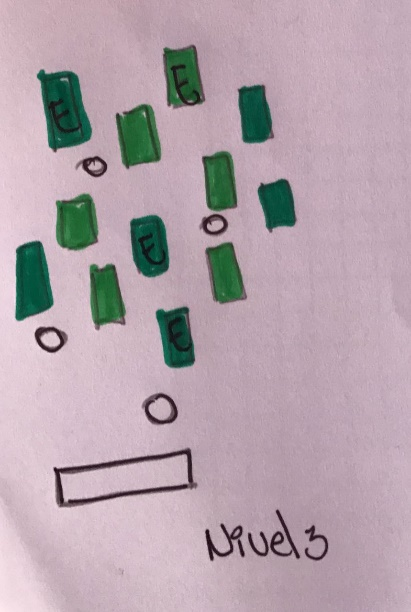 E
E
E
E
Nivel3